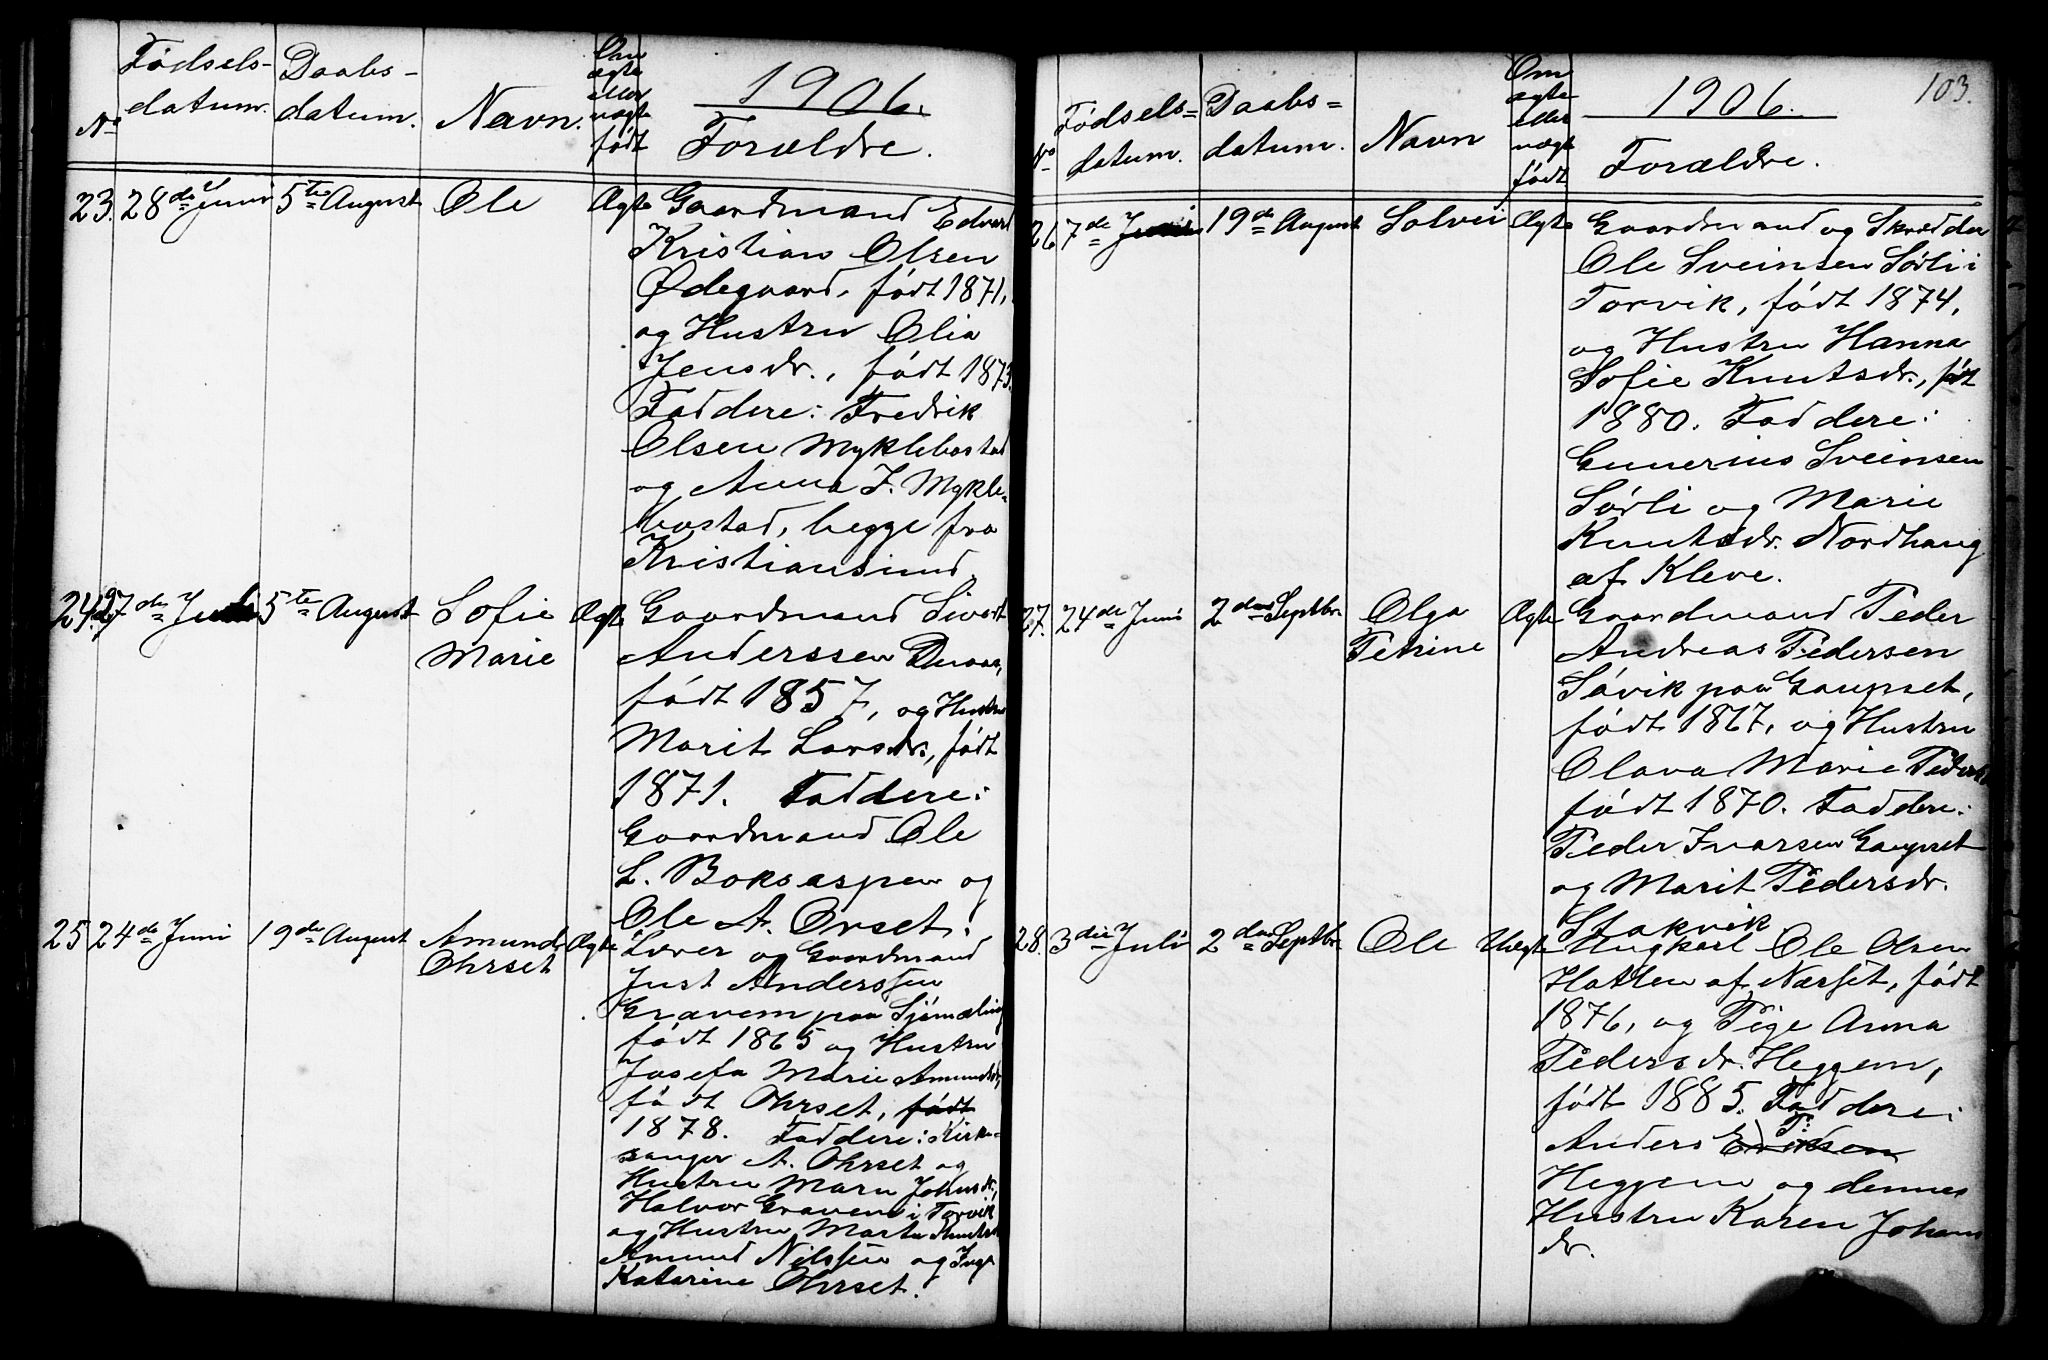 No
Fødsels-
datum.
Daabs-
datum.
Navn.
Om
ægte
eller
uægte
født
1906.
Forældre.
23. 28de Juni 5te August Ole Ægte Gaardmand Edvard
Kristian Olsen
Ødegaard, født 1871,
og Hustru Olia
Jensdr., født 1873.
Faddere: Fredrik
Olsen Myklebostad
og Anna J. Mykle-
bostad, begge fra
Kristiansund
24. 27de 5te August Sofie Marie Ægte Gaardmand Sivert
Anderssen
født 1857, og Hustru
Marit Larsdr., født
1871. Faddere:
Gaardmand Ole
L. Boksaspen og
Ole A. Orset.
25 24de Juni 19de August Amund Ohrset Ægte Lærer og Gaardmand
Just Anderssen
Gravem paa Sjømæling
født 1865 og Hustru
Josefa Marie Amundsdr,
født Ohrset, født
1878. Faddere: Kirke-
sanger A. Ohrset og
Hustru Marn Johnsdr,
Halvor Gravem i Torvik
og Hustru Marta Knutsdr
Amund Nilssen og Inga
Katarina Ohrset.
103.
No
Fødsels-
datum.
Daabs-
datum.
Navn
Om
ægte
eller
uægte
født
1906.
Forældre.
26 7de 19de August Solvei Ægte Gaardmand og Skrædder
Ole Sveinsen Sørli i
Torvik, født 1874,
og Hustru Hanna
Sofie Knutsdr., født
1880. Faddere:
Gunerius Sveinsen
Sørli og Marie
Knutsdr. Nordhaug
af Kleve.
27. 24de Juni 2den Septbr. Olga Petrine Ægte Gaardmand Peder
Andreas Pedersen
Søvik paa Gaupset,
født 1867, og Hustru
Olava Marie Pedersdr
født 1870. Faddere:
Peder Ivarsen Gaupset
og Marit Pedersdr.
Stokvik
28. 3die Juli 2den Septbr. Ole Uægte Ungkarl Ole Olsen
Hatlen af Næsset, født
1876, og Pige Anna
Pedersdr. Heggem,
født 1885. Faddere:
Anders Eriksen P.
Heggem og dennes
Hustru Karen Johans
dr.